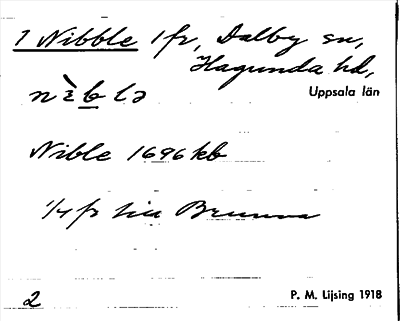 1 Nibble 1 fr, Dalby sn,
Hagunda hd,
Uppsala län
Nible 1696 kb
1/4 fr till Brunna
2
P. M. Lijsing 1918